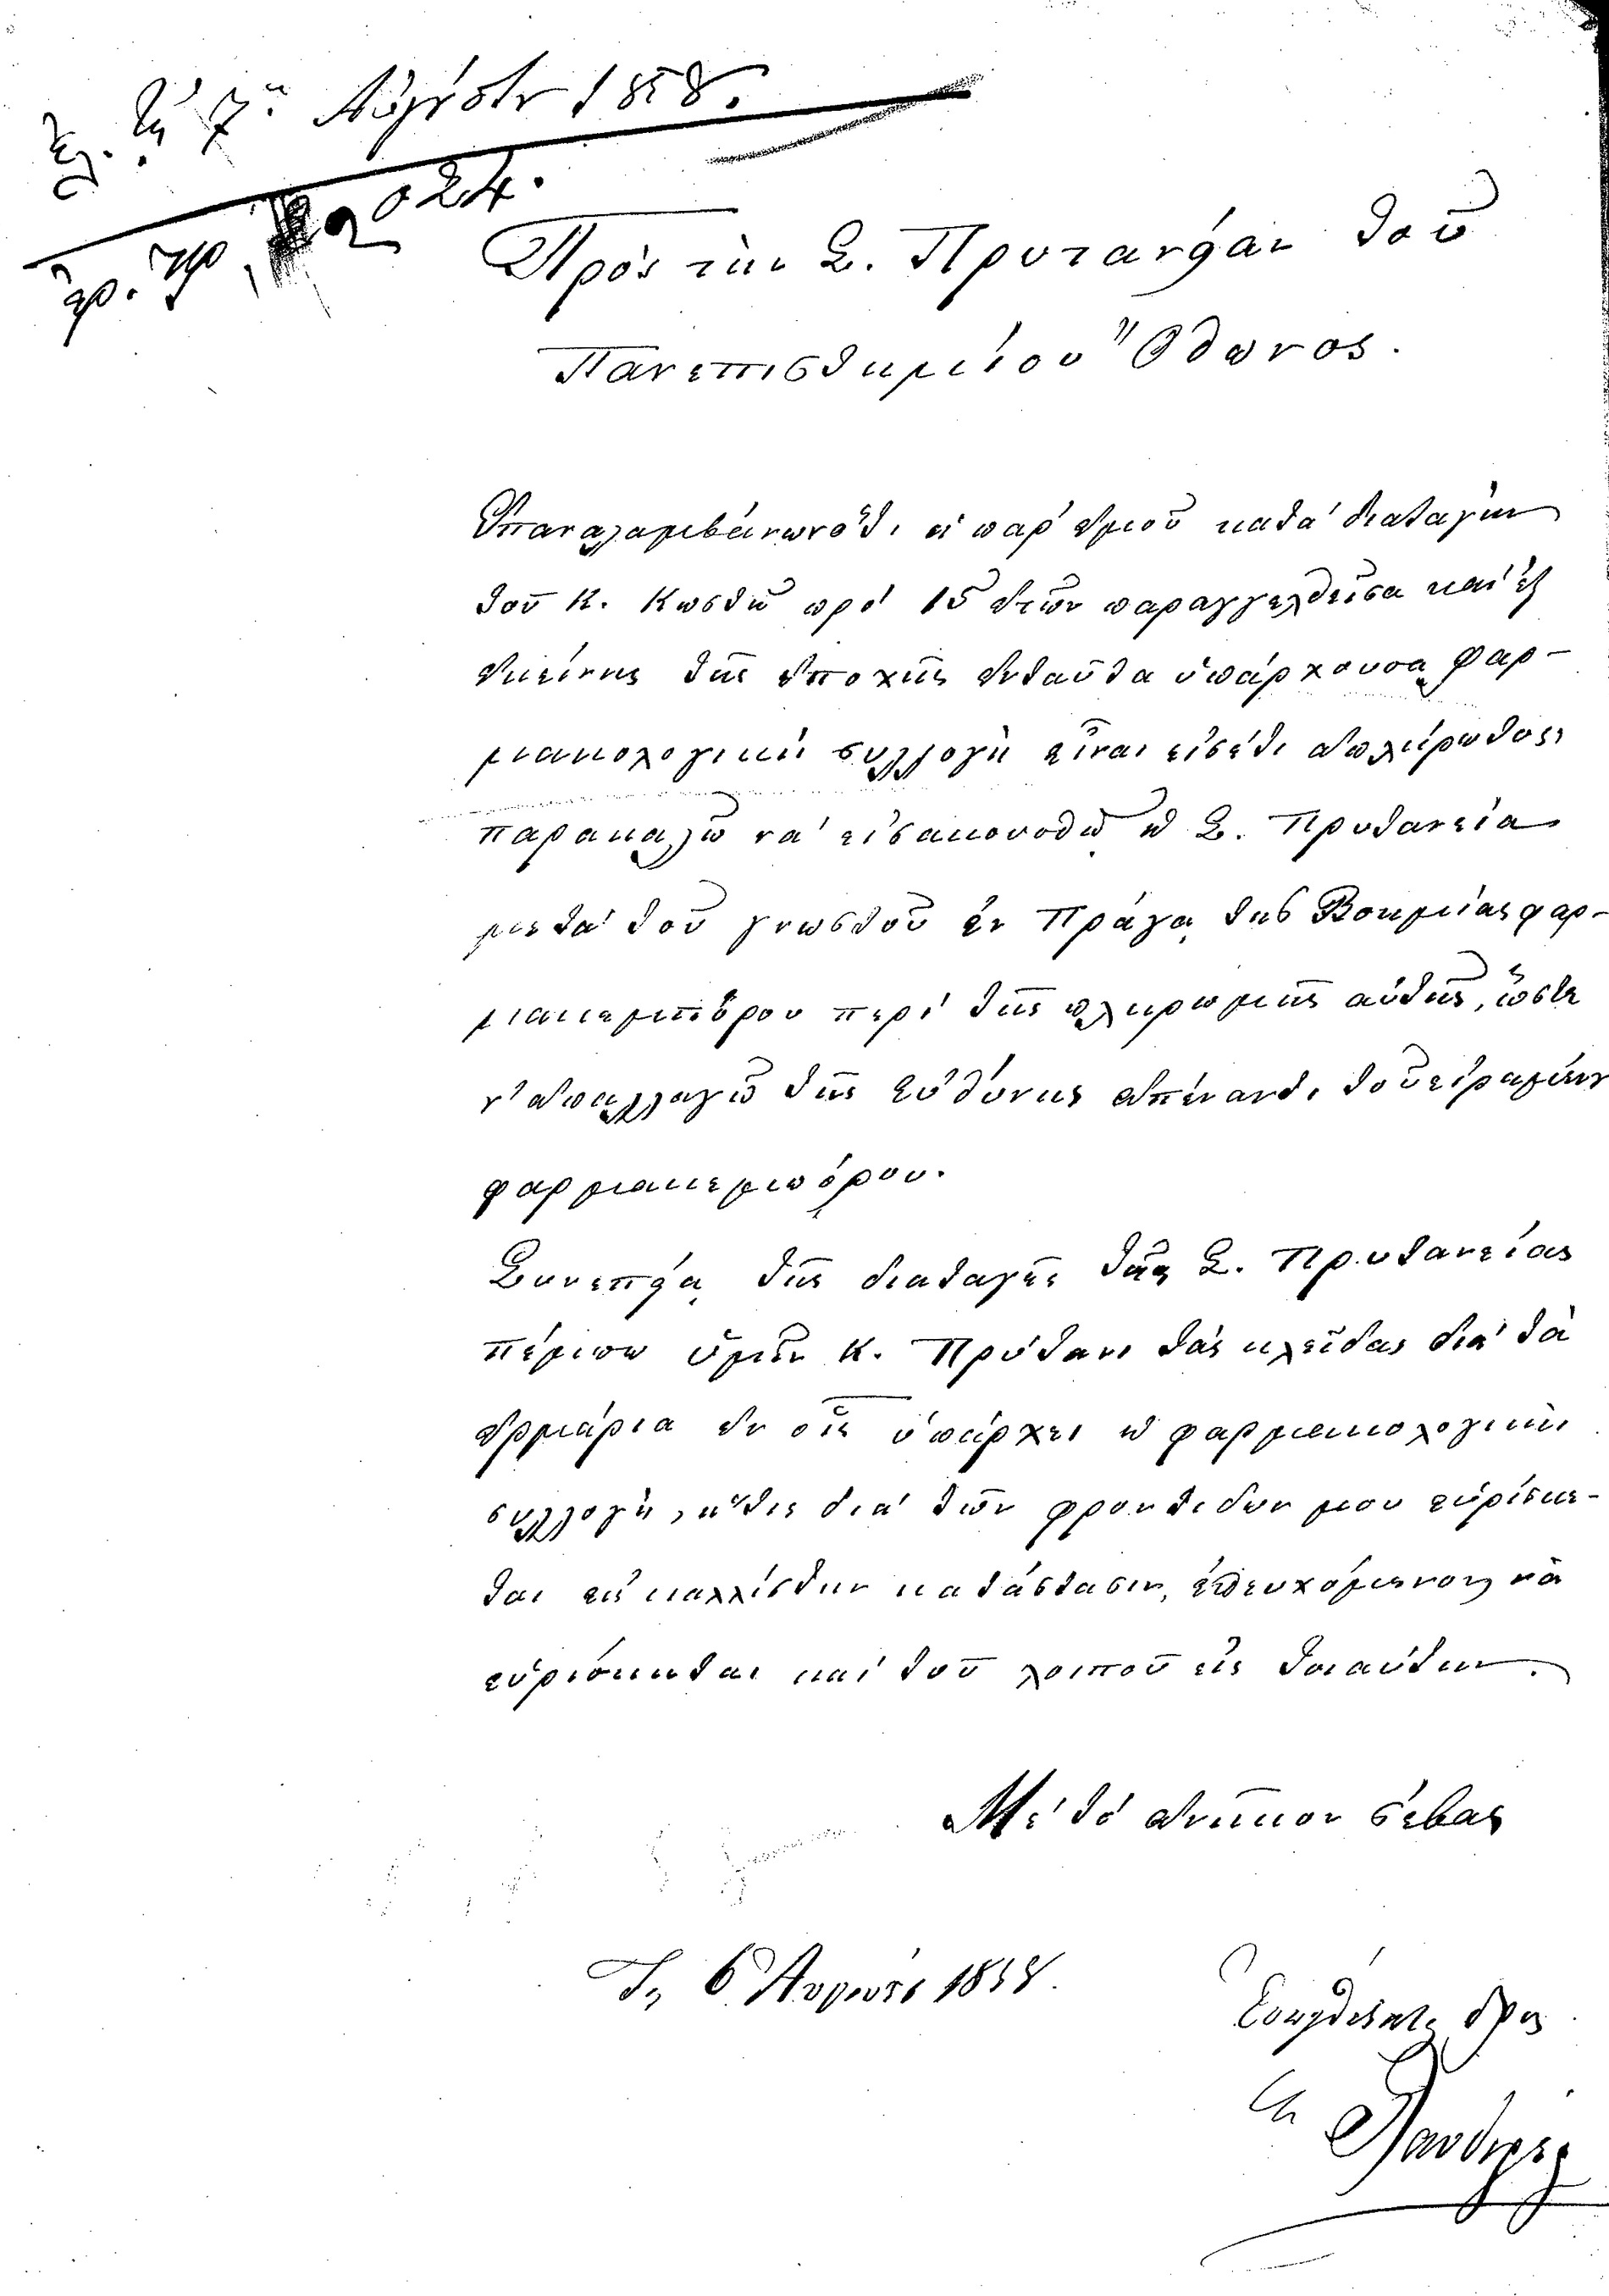 τῇ 7ῃ Αὐγούστου 1858.
ἀρ. πρ. 12024.
Πρὸς τὴν Σ. Πρυτανείαν τοῦ
Πανεπιστημείου Ὄθωνος.
Ἐπαναλαμβάνων ὅτι ἡ παρ' ἐμοῦ κατὰ διαταγὴν
τοῦ Κ. Κωστῆ πρὸ 15 ἐτῶν παραγγελθεῖσα καὶ ἐξ
ἐκείνης τῆς ἐποχῆς ἐνταῦθα ὑπάρχουσα φαρ-
μακολογικὴ συλλογὴ εἶναι εἰσέτι ἀπλήρωτος,
παρακαλῶ νὰ εἰσακουσθῶ ἡ Σ. Πρυτανεία
μετὰ τοῦ γνωστοῦ ἐν Πράγᾳ τῆς Βοημίας φαρ-
μακεμπόρου περὶ τῆς πληρωμῆς αὐτῆς, ὥστε
ν' ἀπαλλαγῶ τῆς εὐθύνης ἀπέναντι τοῦ εἰρημένου
φαρμακεμπόρου.
Συνεπείᾳ τῆς διαταγῆς τῆς Σ. Πρυτανείας
πέμπω ὑμῖν Κ. Πρύτανι τὰς κλεῖδας διὰ τὰ
ἀρμάρια ἐν οἷς ὑπάρχει ἡ φαρμακολογικὴ
συλλογὴ, ἥτις διὰ τῶν φροντίδων μου εὑρίσκε-
ται εἰς καλλίστην κατάστασιν, ἐπευχόμενος νὰ
εὑρίσκηται καὶ τοῦ λοιποῦ εἰς τοιαύτην.
Μὲ τὸ ἀνῆκον σέβας
Τῇ 6 Αὐγούστ 1858.
Εὐπειθέστατος
Λάνδερερ